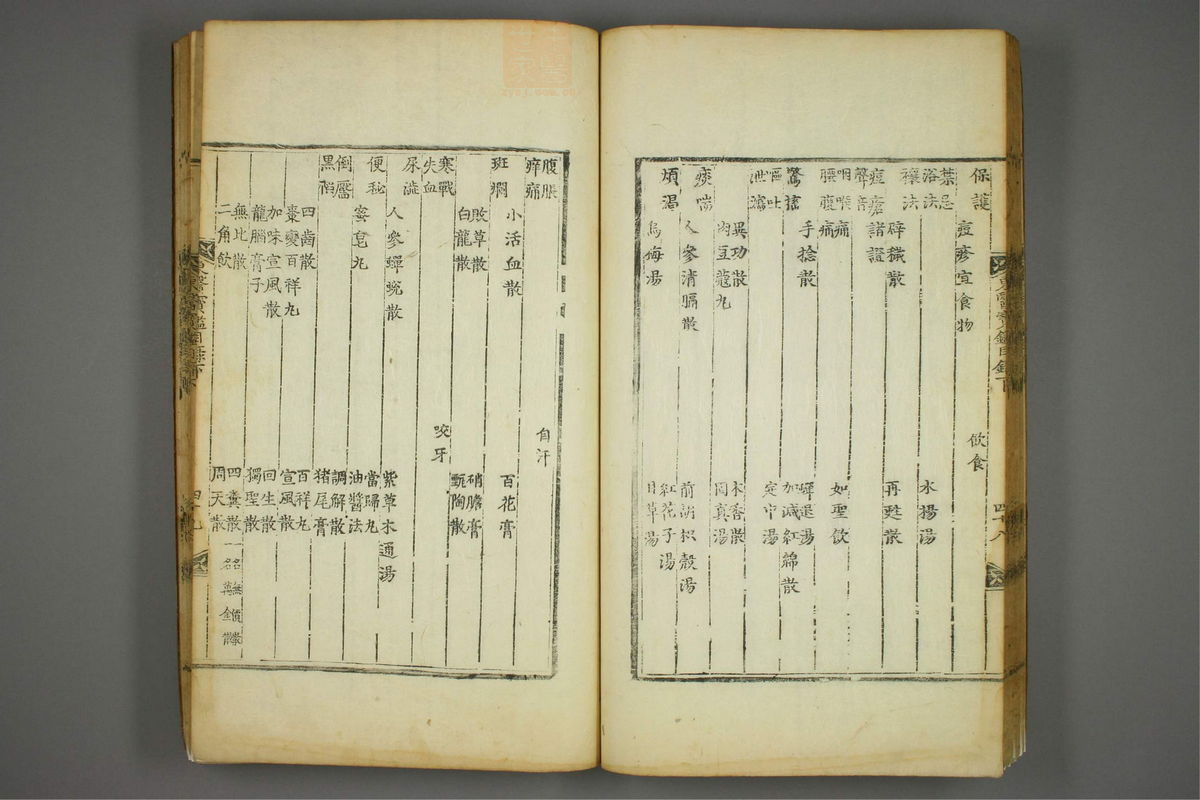 保護　飲食
痘疹宜食物
禁忌
浴法　水楊湯
禳法　辟穢散　再甦散
痘瘡諸證
聲音
咽喉痛
腰腹痛　如聖飲
手捻散　蟬退湯
驚搐　加減紅綿散
嘔吐　定中湯
泄瀉
異功散　木香散
肉豆蔻丸　固真湯
痰喘
人參清膈散　前胡枳殼湯
煩渴　紅花子湯
烏梅湯　甘草湯
東醫寶鑑目錄下　四十八
腹脹　自汗
痒痛
小活血散　百花膏
斑爛
敗草散　硝膽膏
白龍散　甄陶散
寒戰　咬牙
失血
尿澁
人參蟬蛻散　紫草木通湯
便秘　當歸丸
蜜皂丸　油醬法
倒靨　調解散
黑陷　猪尾膏
四齒散　百祥丸
棗變百祥丸　宣風散
加味宣風散　回生散
龍腦膏子　獨聖散
無比散　四糞散　一名無價散　名萬金散
二角飲　周天散
東醫寶鑑目錄下　四十九